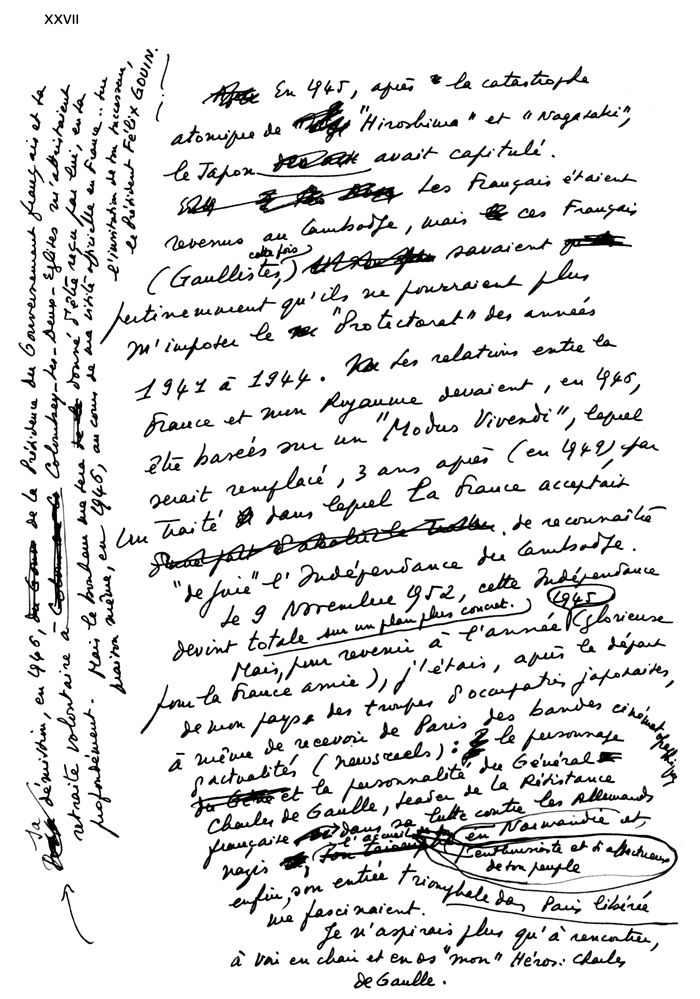 XXVII
En 1945, après la catastrophe
atomique de "Hiroshima" et "Nagasaki",
le Japon avait capitulé.
Les Français étaient
revenus au Cambodge, mais ces Français
(Gaullistes, cette fois) savaient
pertinemment qu'ils ne pourraient plus
m'imposer le "Protectorat" des années
1941 à 1944. Les relations entre la
France et mon Royaume devaient, en 1946,
être basées sur un "Modus Vivendi", lequel
serait remplacé, 3 ans après (en 1949), par
un Traité dans lequel la France acceptait
de reconnaître
"de jure" l'Indépendance du Cambodge.
Le 9 Novembre 1953, cette Indépendance
devint totale sur un plan plus concret.
Mais, pour revenir à l'année 1945 (glorieuse
pour la France amie), j'étais, après le départ
de mon pays des troupes d'occupation japonaises,
à même de recevoir de Paris des bandes cinématographiques
d'actualités (newsreels) : le personnage
et la personnalité du Général
Charles de Gaulle, leader de la Résistance
française dans sa lutte contre les Allemands
nazis, l'accueil en Normandie et,
enthousiaste et si affectueux
de son peuple
enfin, son entrée triomphale dans Paris libérée
me fascinaient.
Je n'aspirais plus qu'à rencontrer,
à voir en chair et en os "mon" Héros : Charles
de Gaulle.
Sa démission, en 1946, de la Présidence du Gouvernement français et sa
retraite volontaire à Colombey-les-Deux-Églises m'attristaient
profondément. Mais le bonheur me sera donné d'être reçu par lui, en sa
maison même, en 1946, au cours de ma visite officielle en France... sur
l'invitation de son successeur,
le Président Félix GOUIN.